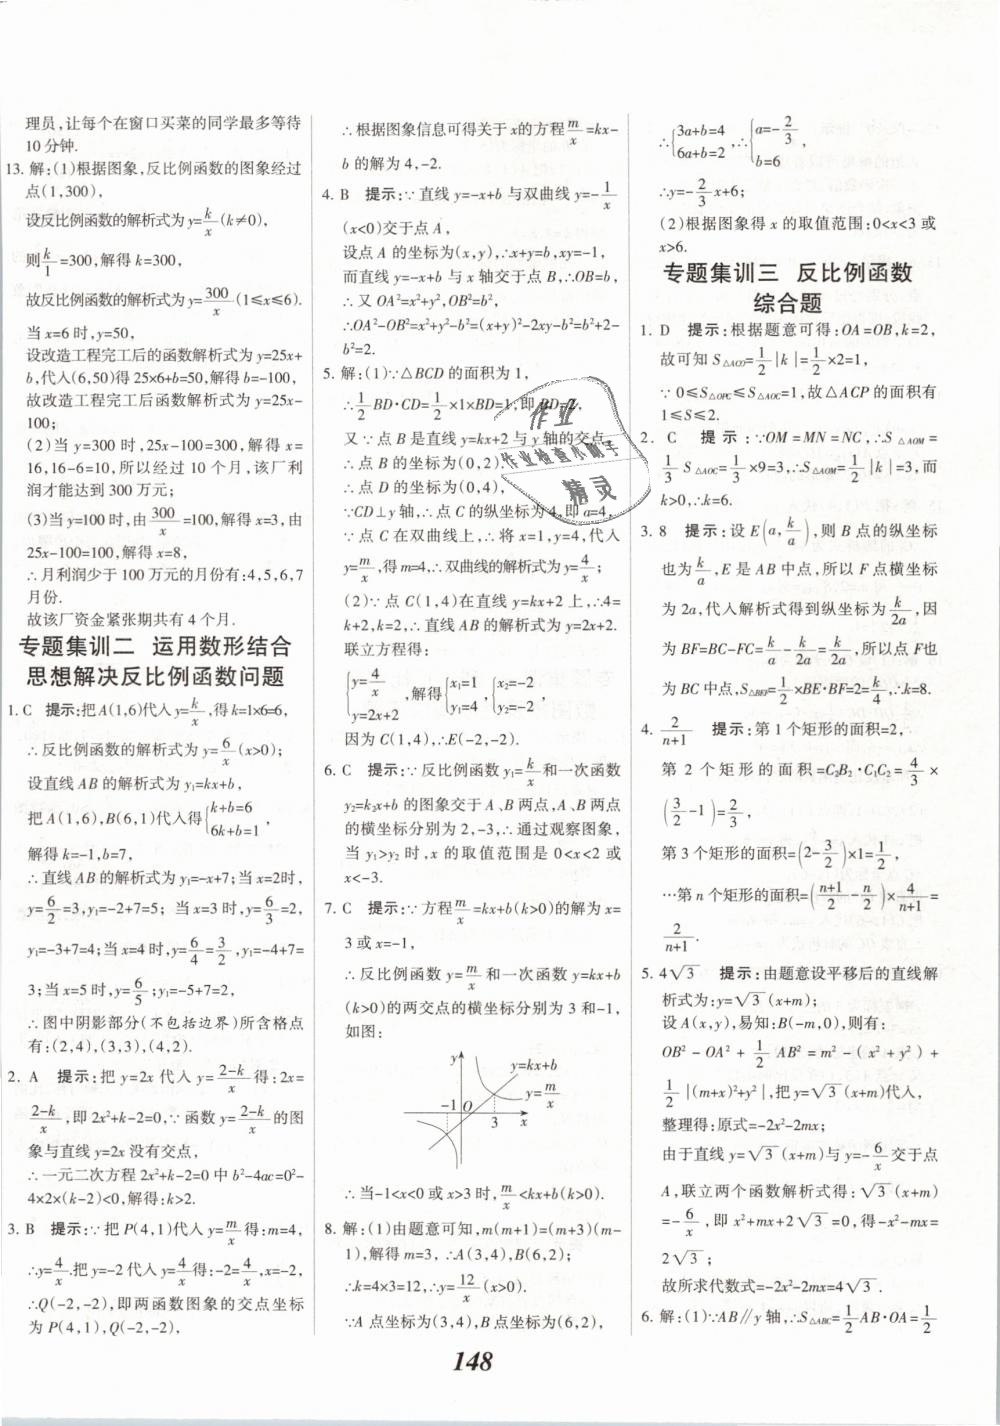 理员,让每个在窗口买菜的同学最多等待
10分钟.
13. 解:(1)根据图象,反比例函数的图象经过
点(1,300),
设反比例函数的解析式为y=k/x(k≠0),
则k/1=300,解得k=300,
故反比例函数的解析式为y=300/x(1≤x≤6).
当x=6时,y=50,
设改造工程完工后的函数解析式为y=25x+
b,代入(6,50)得25×6+b=50,解得b=-100,
故改造工程完工后函数解析式为y=25x-
100;
(2)当y=300时,25x-100=300,解得x=
16,16-6=10,所以经过10个月,该厂利
润才能达到300万元;
(3)当y=100时,由300/x=100,解得x=3,由
25x-100=100,解得x=8,
∴月利润少于100万元的月份有:4,5,6,7
月份.
故该厂资金紧张期共有4个月.
专题集训二 运用数形结合
思想解决反比例函数问题
1. C 提示:把A(1,6)代入y=k/x,得k=1×6=6,
∴反比例函数的解析式为y=6/x(x>0);
设直线AB的解析式为y₁=kx+b,
把A(1,6),B(6,1)代入得{k+b=6
6k+b=1,
解得k=-1,b=7,
∴直线AB的解析式为y₁=-x+7;当x=2时,
y=6/2=3,y₁=-2+7=5;当x=3时,y=6/3=2,
y₁=-3+7=4;当x=4时,y=6/4=3/2,y₁=-4+7=
3;当x=5时,y=6/5;y₁=-5+7=2,
∴图中阴影部分(不包括边界)所含格点
有:(2,4),(3,3),(4,2).
2. A 提示:把y=2x代入y=2-k/x得:2x=
2-k/x,即2x²+k-2=0,∵函数y=2-k/x的图
象与直线y=2x没有交点,
∴一元二次方程2x²+k-2=0中b²-4ac=0²-
4×2×(k-2)<0,解得:k>2.
3. B 提示:∵把P(4,1)代入y=m/x得:m=4,
∴y=4/x.把y=-2代入y=4/x得:-2=4/x,x=-2,
∴Q(-2,-2),即两函数图象的交点坐标
为P(4,1),Q(-2,-2),
∴根据图象信息可得关于x的方程m/x=kx-
b的解为4,-2.
4. B 提示:∵直线y=-x+b与双曲线y=-1/x
(x<0)交于点A,
设点A的坐标为(x,y),∴x+y=b,xy=-1,
而直线y=-x+b与x轴交于点B,∴OB=b,
∴又OA²=x²+y²,OB²=b²,
∴OA²-OB²=x²+y²-b²=(x+y)²-2xy-b²=b²+2-
b²=2.
5. 解:(1)∵△BCD的面积为1,
∴1/2BD·CD=1/2×1×BD=1,即BD=2,
又∵点B是直线y=kx+2与y轴的交点,
∴点B的坐标为(0,2).
∴点D的坐标为(0,4),
∵CD⊥y轴,∴点C的纵坐标为4,即a=4,
∵点C在双曲线上,∴将x=1,y=4,代入
y=m/x,得m=4,∴双曲线的解析式为y=4/x;
(2)∵点C(1,4)在直线y=kx+2上,∴4=
k+2,k=2,∴直线AB的解析式为y=2x+2.
联立方程得:
{y=4/x
y=2x+2,解得{x₁=1
y₁=4,{x₂=-2
y₂=-2.
因为C(1,4),∴E(-2,-2).
6. C 提示:∵反比例函数y₁=k/x和一次函数
y₂=k₂x+b的图象交于A、B两点,A、B两点
的横坐标分别为2,-3,∴通过观察图象,
当y₁>y₂时,x的取值范围是0<x<2或
x<-3.
7. C 提示:∵方程m/x=kx+b(k>0)的解为x=
3或x=-1,
∴反比例函数y=m/x和一次函数y=kx+b
(k>0)的两交点的横坐标分别为3和-1,
如图:
y
y=kx+b
y=m/x
-1 O 3 x
∴当-1<x<0或x>3时,m/x<kx+b(k>0).
8. 解:(1)由题意可知,m(m+1)=(m+3)(m-
1),解得m=3,∴A(3,4),B(6,2);
∴k=4×3=12,∴y=12/x(x>0).
∵A点坐标为(3,4),B点坐标为(6,2),
∴{3a+b=4
6a+b=2,∴{a=-2/3
b=6
∴y=-2/3x+6;
(2)根据图象得x的取值范围:0<x<3或
x>6.
专题集训三 反比例函数
综合题
1. D 提示:根据题意可得:OA=OB,k=2,
故可知S△ACO=1/2|k|=1/2×2=1,
∵0≤S△OPC≤S△AOC=1,故△ACP的面积有
1≤S≤2.
2. C 提示:∵OM=MN=NC,∴S△AOM=
1/3S△AOC=1/3×9=3,∴S△AOM=1/2|k|=3,而
k>0,∴k=6.
3. 8 提示:设E(a,k/a),则B点的纵坐标
也为k/a,E是AB中点,所以F点横坐标
为2a,代入解析式得到纵坐标为k/2a,因
为BF=BC-FC=k/a-k/2a=k/2a,所以点F也
为BC中点,S△BEF=1/2×BE·BF=2=k/4,∴k=8.
4. 2/n+1 提示:第1个矩形的面积=2,
第2个矩形的面积=C₂B₂·C₁C₂=4/3×
(3/2-1)=2/3,
第3个矩形的面积=(2-3/2)×1=1/2,
…第n个矩形的面积=(n+1/2-n/2)×4/n+1=
2/n+1.
5. 4√3 提示:由题意设平移后的直线解
析式为:y=√3(x+m);
设A(x,y),易知:B(-m,0),则有:
OB²-OA²+1/2AB²=m²-(x²+y²)+
1/2|(m+x)²+y²|,把y=√3(x+m)代入,
整理得:原式=-2x²-2mx;
由于直线y=√3(x+m)与y=-6/x交于点
A,联立两个函数解析式得:√3(x+m)
=-6/x,即x²+mx+2√3=0,得-x²-mx=
2√3;
故所求代数式=-2x²-2mx=4√3.
6. 解:(1)∵AB∥y轴,∴S△ABC=1/2AB·OA=1/2
作业
作业检查小助手
精灵
148